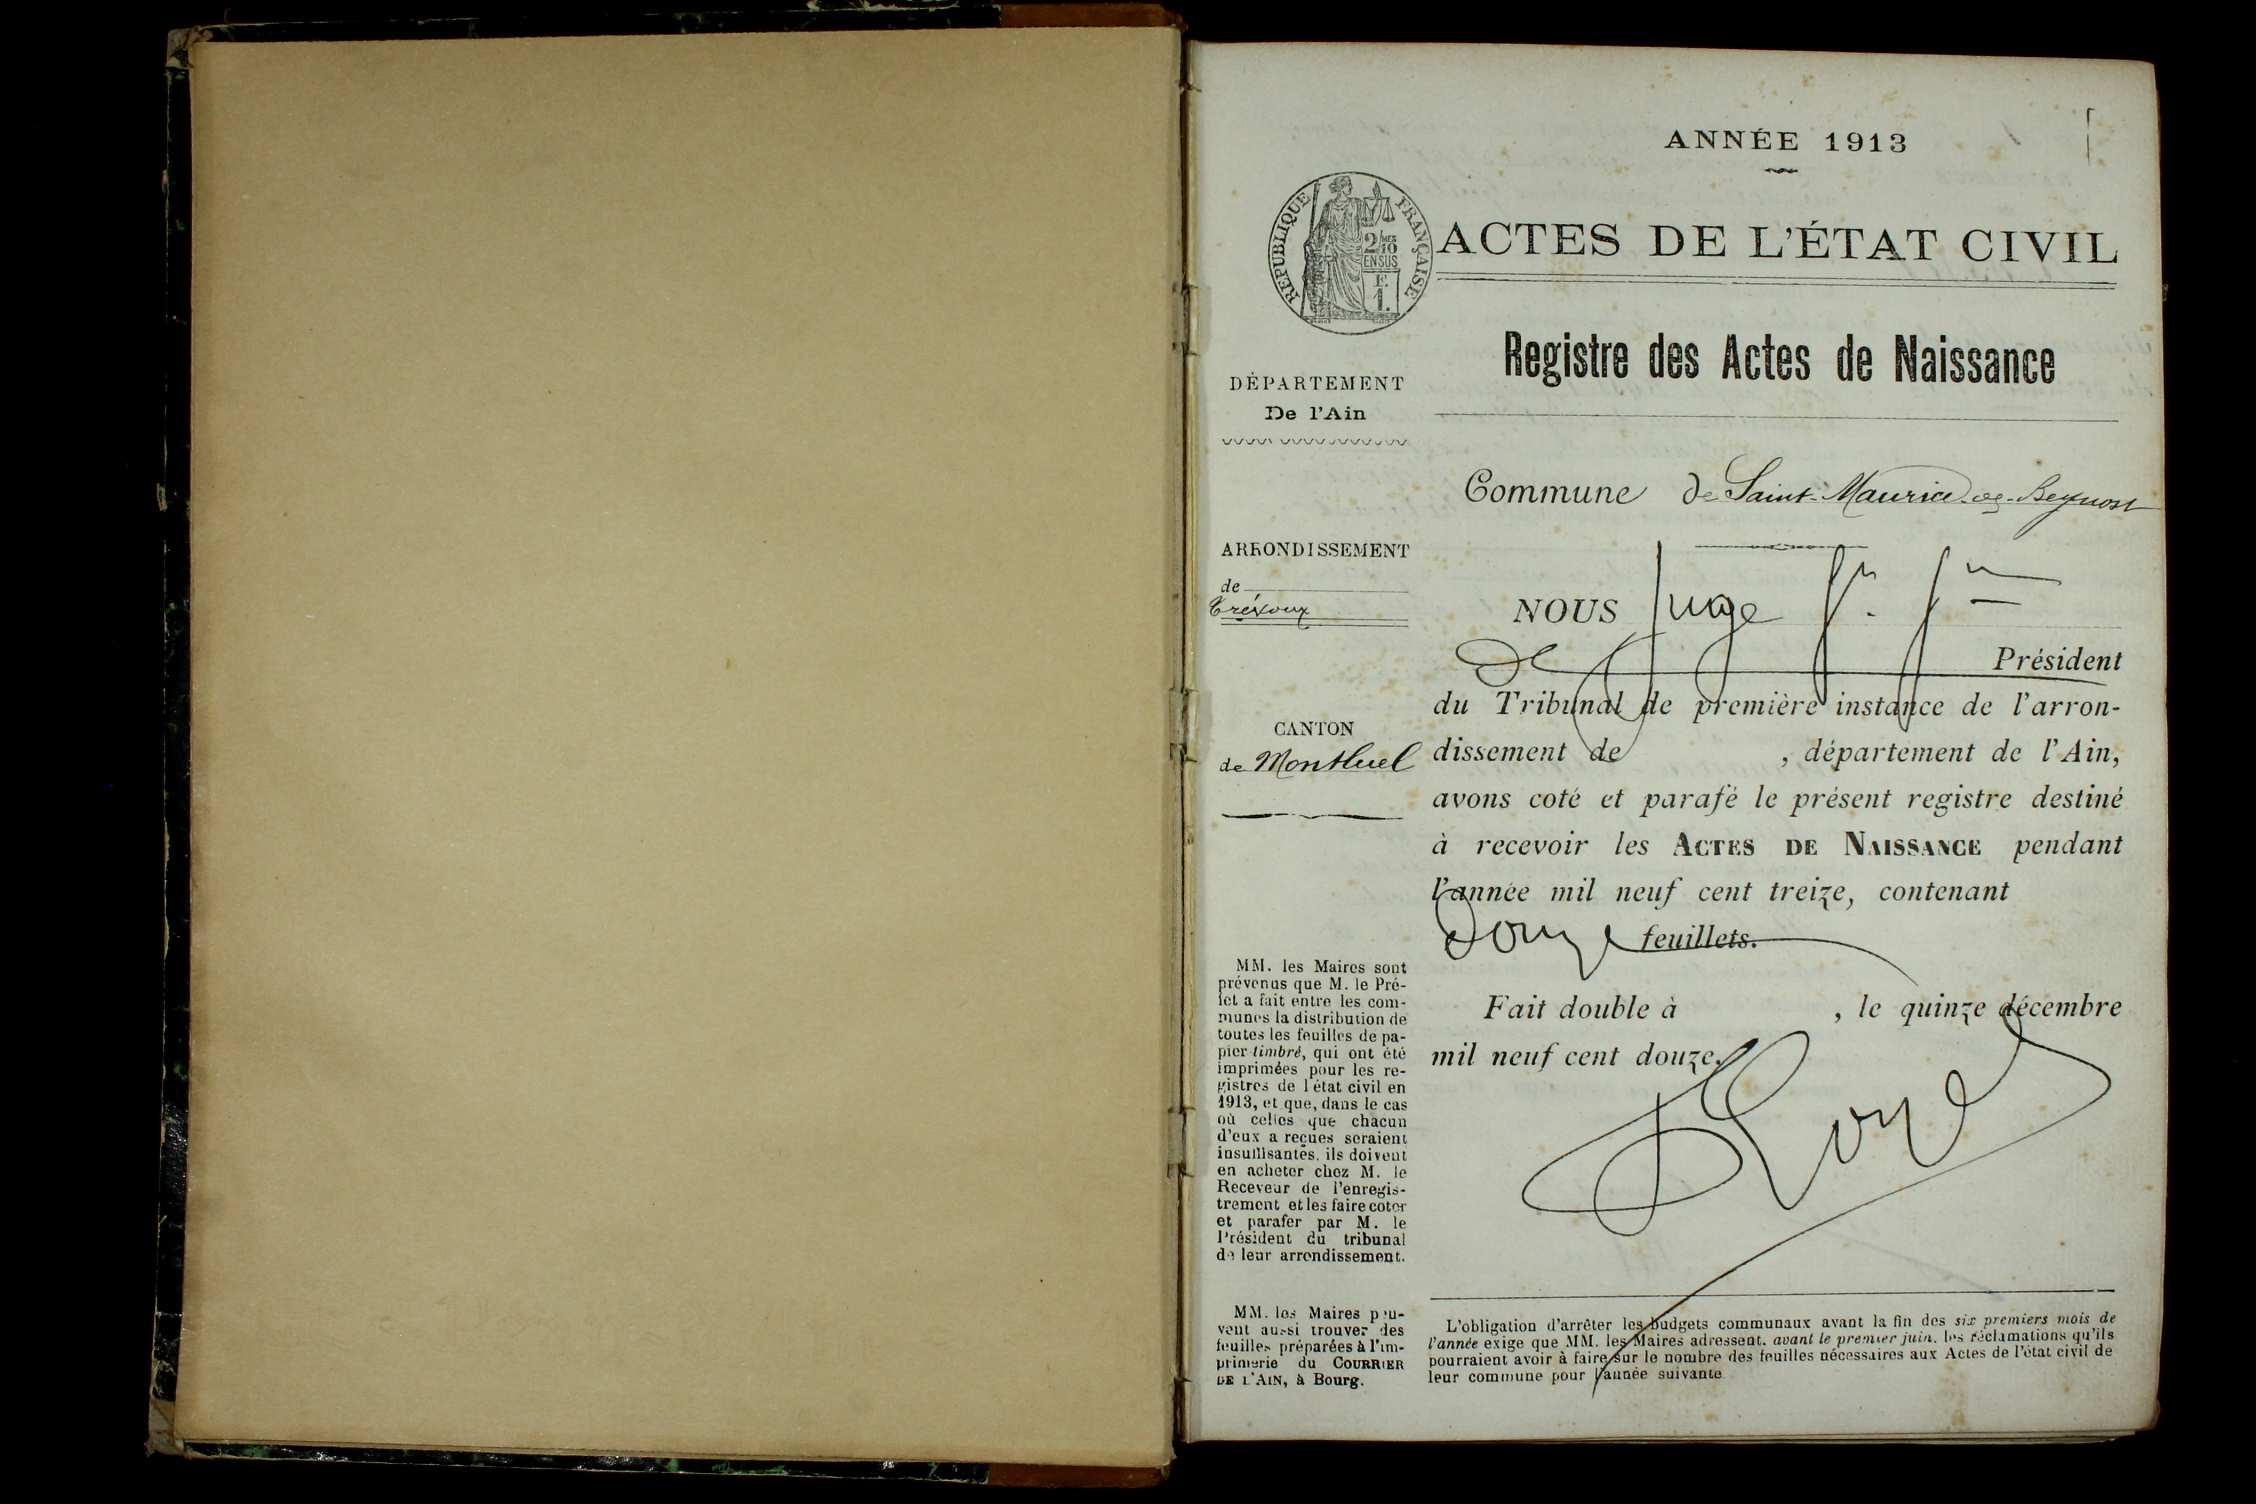 ANNÉE 1913
RÉPUBLIQUE FRANÇAISE
2/10
EN SUS
F.
1.
ACTES DE L'ÉTAT CIVIL
Registre des Actes de Naissance
DÉPARTEMENT
De l'Ain
Commune de Saint-Maurice-de-Beynost
ARRONDISSEMENT
de
Trévoux
NOUS Juge
de Président
du Tribunal de première instance de l'arron-
dissement de , département de l'Ain,
avons coté et parafé le présent registre destiné
à recevoir les ACTES DE NAISSANCE pendant
l'année mil neuf cent treize, contenant
Douze feuillets.
Fait double à , le quinze décembre
mil neuf cent douze.
CANTON
de Montluel
MM. les Maires sont
prévenus que M. le Pré-
fet a fait entre les com-
munes la distribution de
toutes les feuilles de pa-
pier timbré, qui ont été
imprimées pour les re-
gistres de l'état civil en
1913, et que, dans le cas
où celles que chacun
d'eux a reçues seraient
insuffisantes, ils doivent
en acheter chez M. le
Receveur de l'enregis-
trement et les faire coter
et parafer par M. le
Président du tribunal
de leur arrondissement.
MM. les Maires peu-
vent aussi trouver des
feuilles préparées à l'im-
primerie du COURRIER
DE L'AIN, à Bourg.
L'obligation d'arrêter les budgets communaux avant la fin des six premiers mois de
l'année exige que MM. les Maires adressent, avant le premier juin, les réclamations qu'ils
pourraient avoir à faire sur le nombre des feuilles nécessaires aux Actes de l'état civil de
leur commune pour l'année suivante